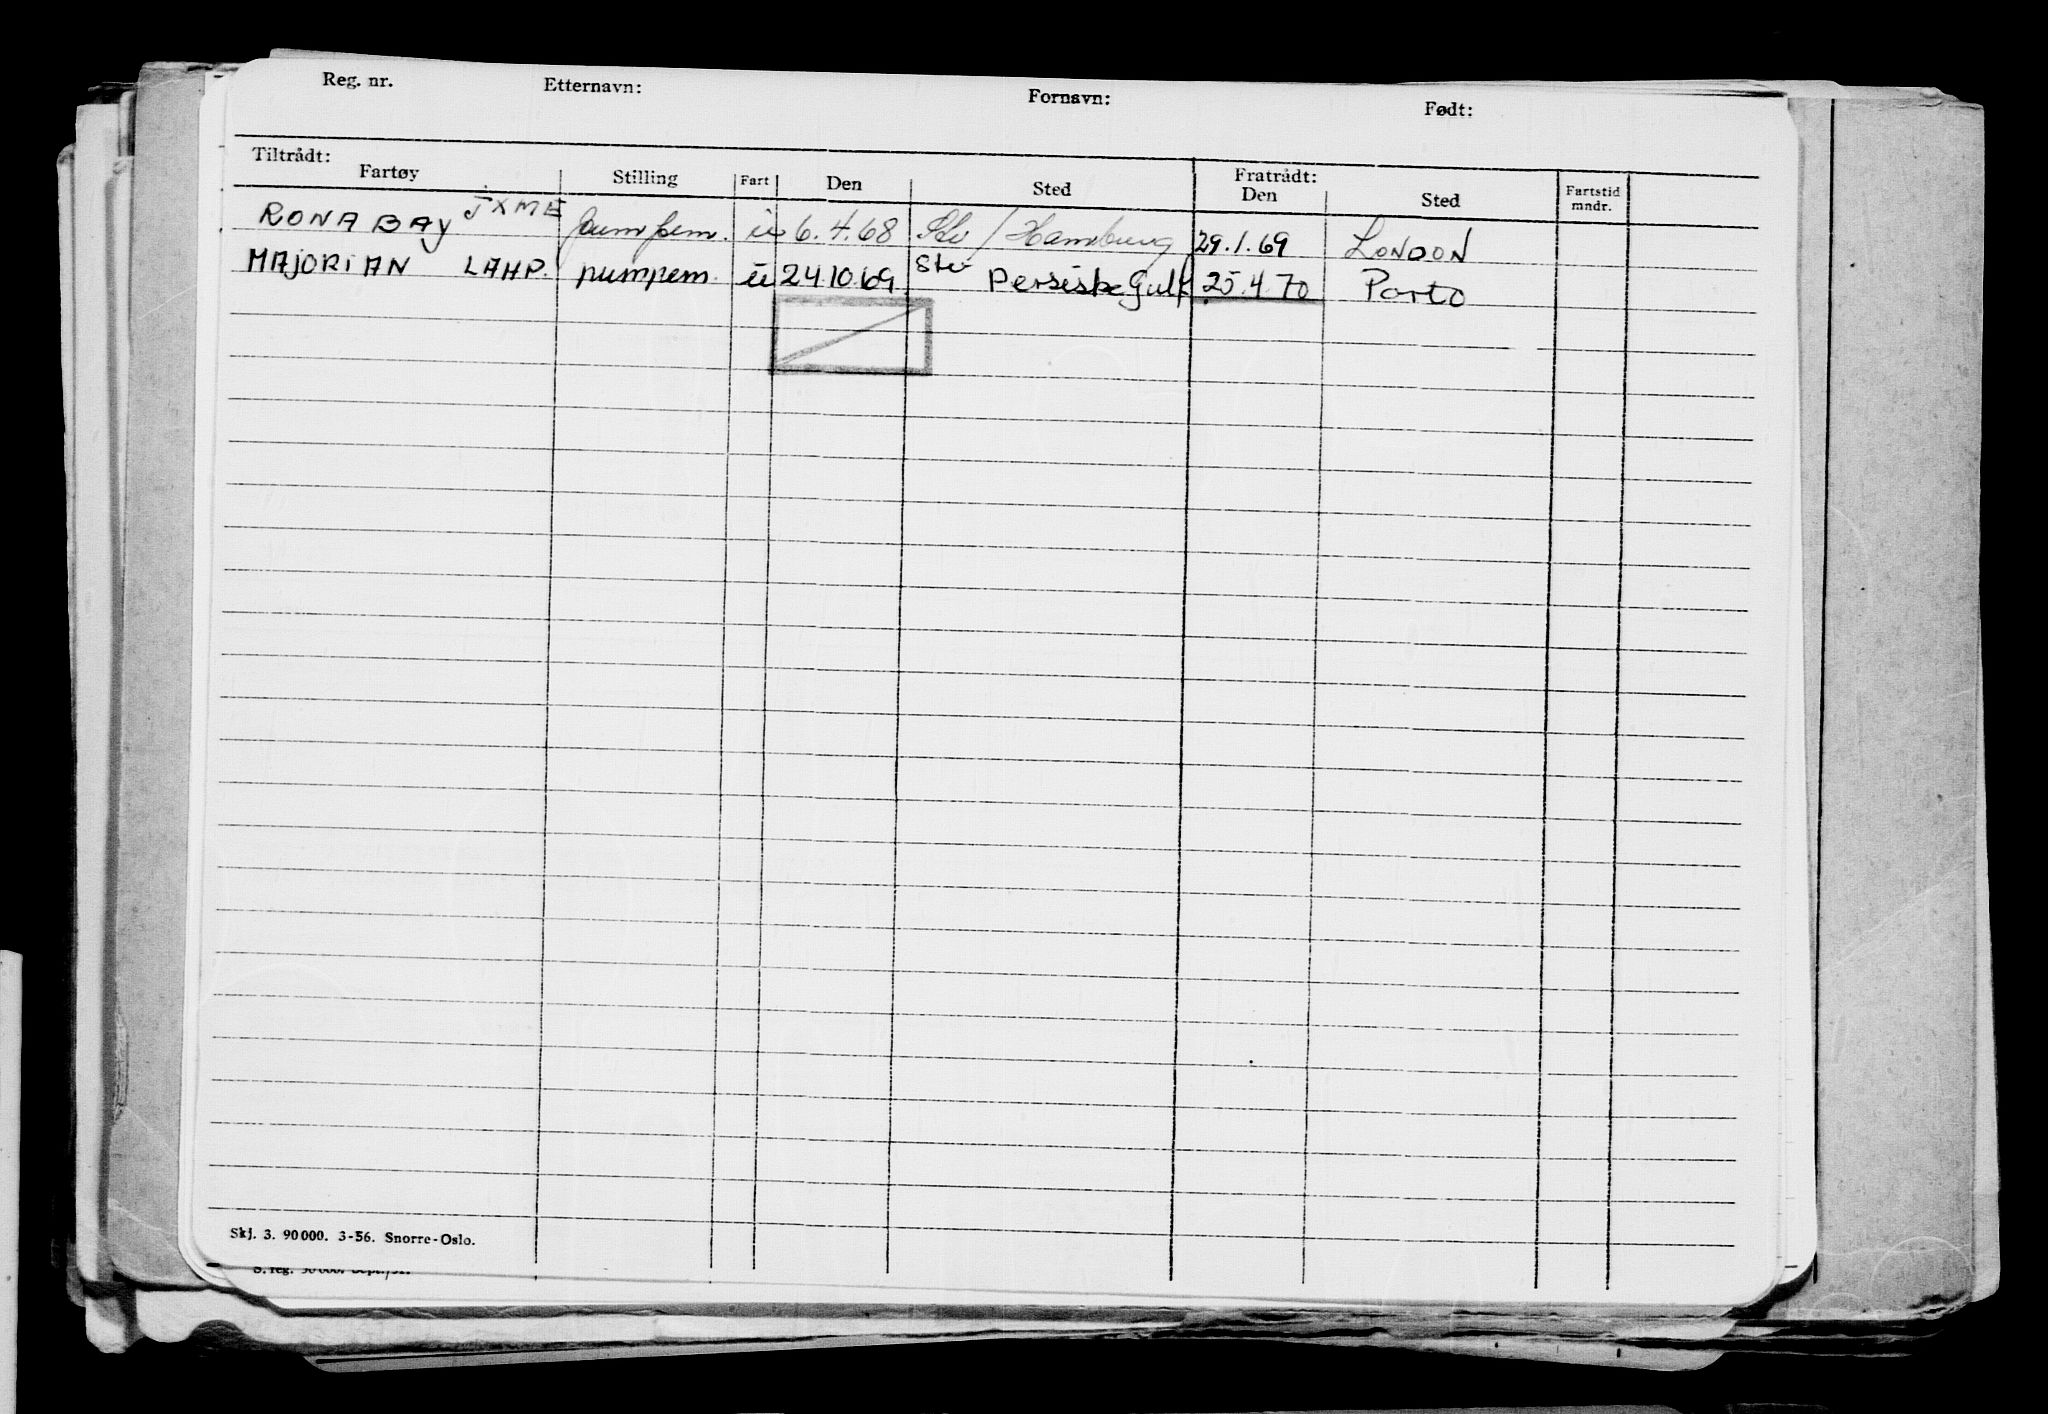 Reg. nr. Etternavn: Fornavn: Født:
Tiltrådt: Fratrådt:
Fartøy Stilling Fart Den Sted Den Sted Fartstid mndr.
RONA BAY JXME pumpem. u 6.4.68 / Hamburg 29.1.69 LONDON
MAJORIAN LAHP. pumpem. u 24.10.69 Persiske Gulf 25.4.70 Porto
Skj. 3. 90 000. 3-56. Snorre-Oslo.